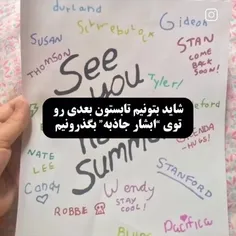 durland
Gideon
SUSAN
Schmebulock
STAN
COME BACK SOON!
THOMSON
See
you
Tyler!
شاید بتونیم تابستون بعدی رو
توی "ابشار جاذبه" بگذرونیم
-HUGS!
NATE
LEE
Summer
STANFORD
Candy
Wendy
STAY COOL!
ROBBE
Pacifica